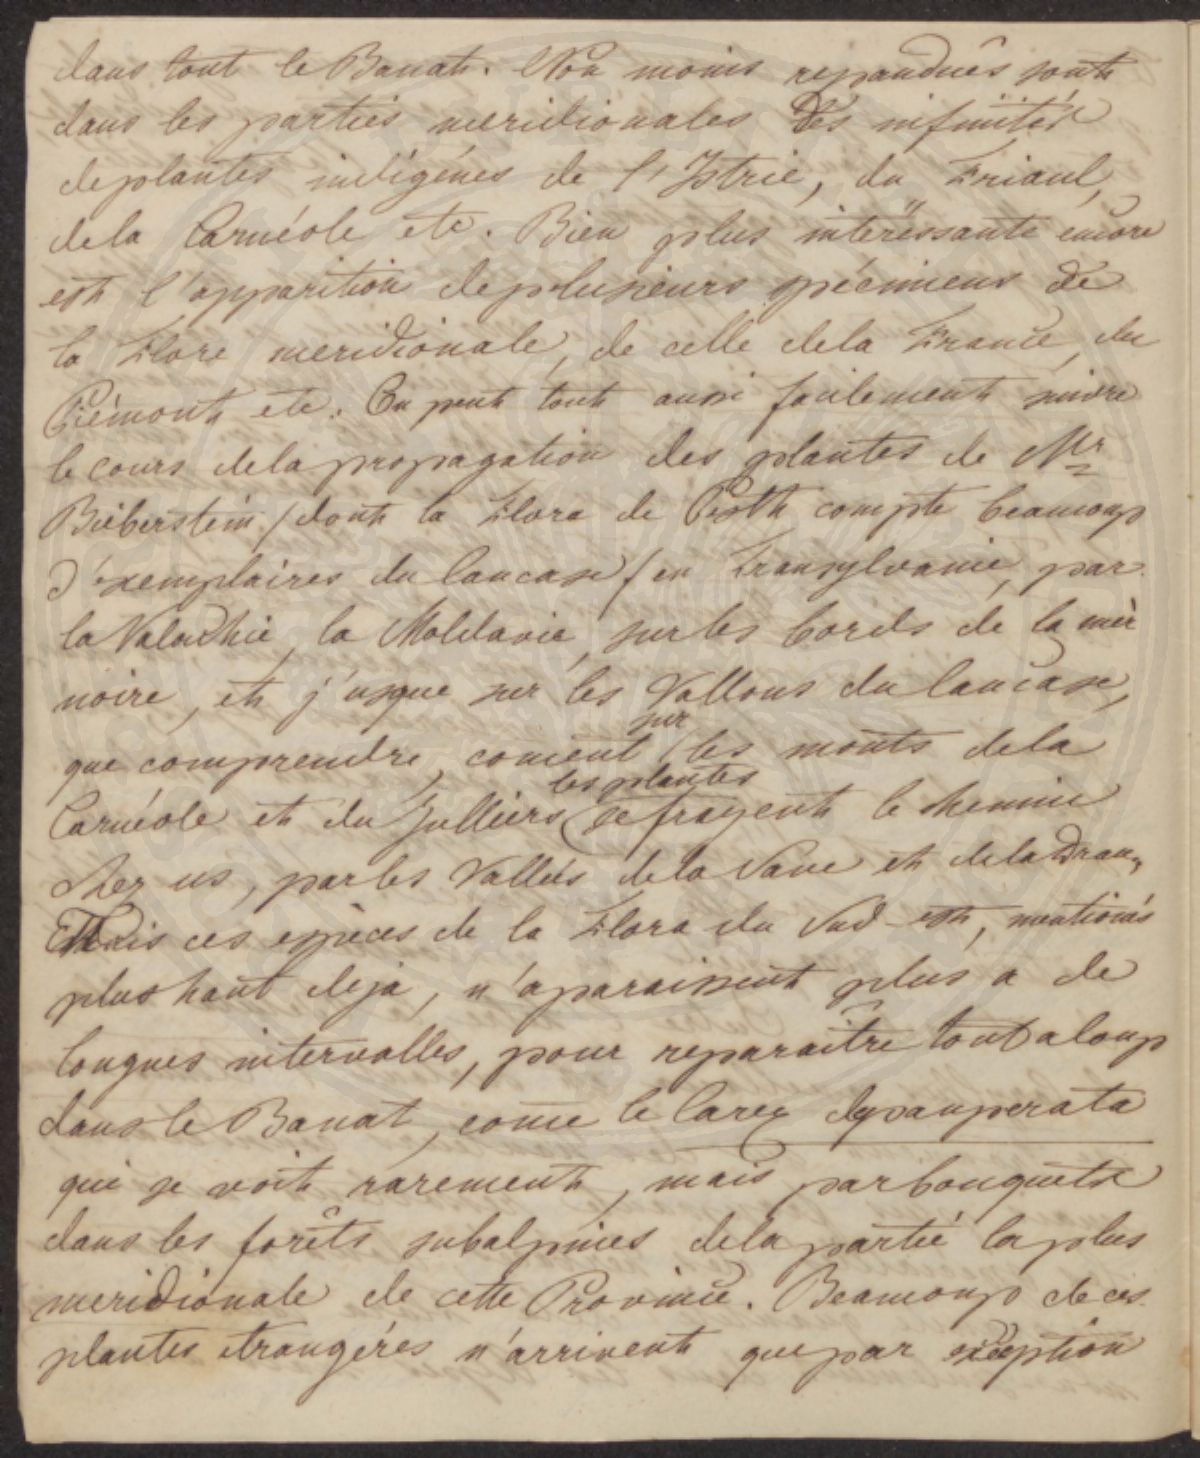 dans tout le Banat. Non moins repandues sont
dans les parties meridionales des infinités
de plantes indigénes de l'Istrie, du Friaul,
dela Carnéole etc. Bien plus intéressante encore
est l'apparition deplusieurs spécimens de
la Flore meridionale, de celle dela France, du
Piémont etc. On peut tout aussi facilement suivre
le cours dela propagation des plantes de Mr
Bieberstein /dont la Flora de Pesth compte beaucoup
d'exemplaires du Caucase/ en Transylvanie, par
la Valachie, la Moldavie, sur les bords de la mer
noire, et j'usque sur les Vallons du Caucase,
que comprendre, coment sur les monts dela
Carnéole et du Julliers les plantes se frayent le chemin
chez us, par les Vallées dela Save et dela Drau,
Mais ces espèces de la Flora du Sud-est, mentionés
plus haut deja, n'aparaissent plus a de
longues intervalles, pour reparaitre tout a coup
dans le Banat, come le Carex depauperata
qui se voit rarement, mais par bouquets
dans les forêts subalpines dela partie la plus
meridionale de cette Province. Beaucoup de ces
plantes etrangéres n'arrivent que par exeption